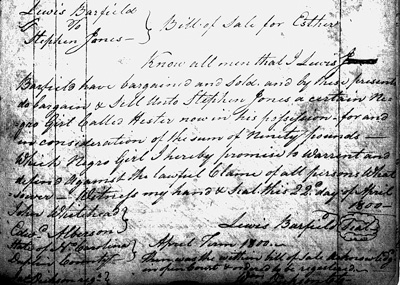 Lewis Barfield
To } Bill of Sale for Esther
Stephen Jones
Know all men that I Lewis
Barfield have bargained and Sold and by these presents
do bargain & Sell Unto Stephen Jones a certain Ne
gro Girl Called Hester now in his possession for and
in consideration of the sum of Ninety pounds
Which Negro Girl I hereby promise to Warrent and
defend Against the lawful Claime of all persons What
soever in Witness my hand & Seal this 22d day of April
1800
John Whitehead
Alberson Lewis Barfield Seal
State of No Carolina April Term 1800
County Then was the within bill of Sale
in open Court & ordered to be registered